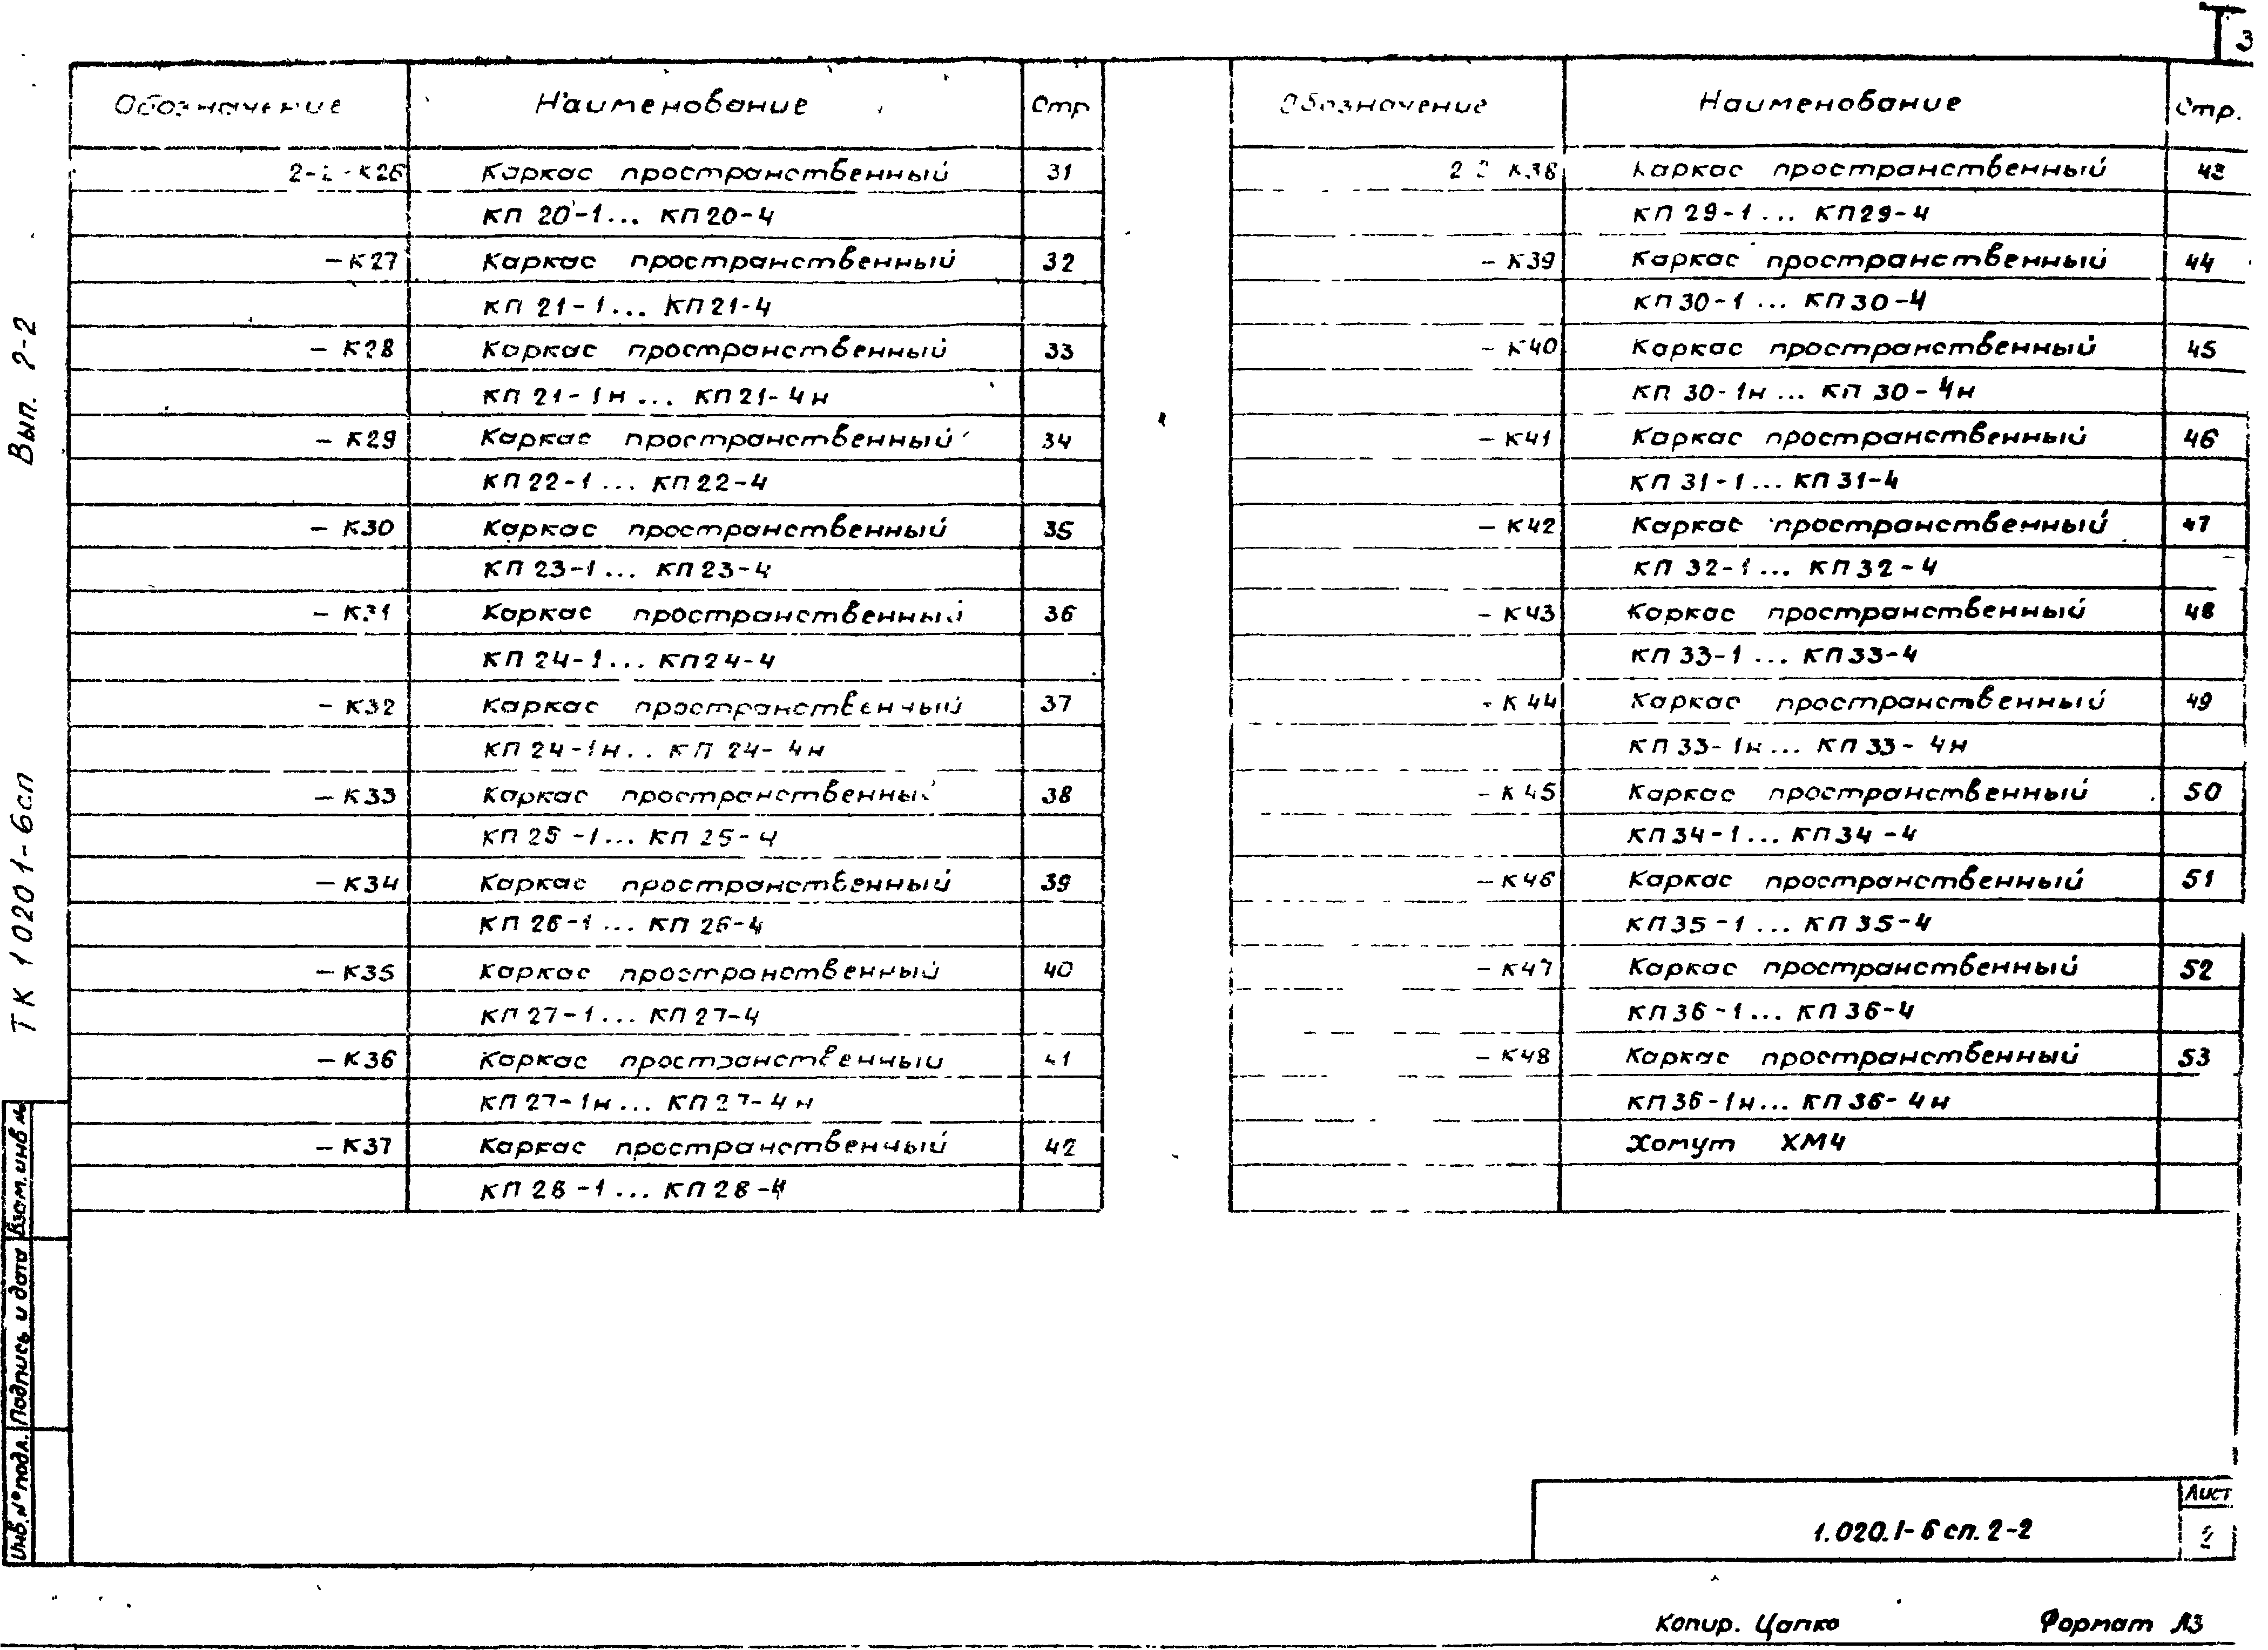 3
Обозначение Наименование Стр
2-2-К26 Каркас пространственный 31
КП 20-1... КП20-4
-К27 Каркас пространственный 32
КП 21-1... КП21-4
- К28 Каркас пространственный 33
КП 21-1н ... КП21-4н
- К29 Каркас пространственный 34
КП22-1 ... КП22-4
- К30 Каркас пространственный 35
КП 23-1... КП23-4
- К31 Каркас пространственный 36
КП 24-1... КП24-4
- К32 Каркас пространственный 37
КП 24-1н.. КП 24-4н
- К33 Каркас пространственный 38
КП 25-1... КП 25-4
- К34 Каркас пространственный 39
КП 26-1 ... КП 26-4
- К35 Каркас пространственный 40
КП 27-1... КП 27-4
- К36 Каркас пространственный 41
КП 27-1н... КП27-4н
- К37 Каркас пространственный 42
КП 28-1 ... КП28-4
Обозначение Наименование Стр.
2-2 К38 Каркас пространственный 43
КП 29-1... КП29-4
- К39 Каркас пространственный 44
КП30-1 ... КП30-4
- К40 Каркас пространственный 45
КП 30-1н ... КП 30-4н
- К41 Каркас пространственный 46
КП 31-1... КП 31-4
- К42 Каркас пространственный 47
КП 32-1... КП32-4
- К43 Каркас пространственный 48
КП 33-1 ... КП33-4
- К44 Каркас пространственный 49
КП33-1н... КП 33-4н
- К45 Каркас пространственный 50
КП34-1... КП34-4
- К46 Каркас пространственный 51
КП35-1 ... КП 35-4
- К47 Каркас пространственный 52
КП36-1... КП 36-4
- К48 Каркас пространственный 53
КП36-1н... КП 36-4н
Хомут ХМ4
Вып. 2-2
ТК 1 020 1-6сп
Взам.инв №
Подпись и дата
Инв.№ подл.
1.020.1-6 сп. 2-2
Лист
2
Копир. Цапко Формат А3